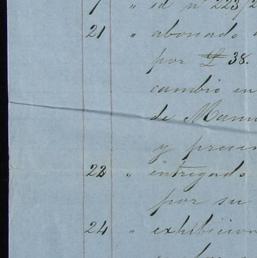 " id nº 223/2
21 " abonado a
por £ 38.
cambio en
de Mann
y presen
22 " entregado
por su
24 " exhibicion